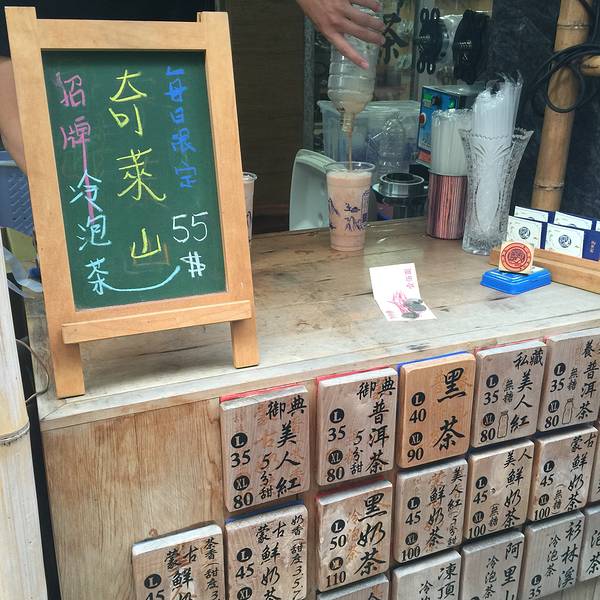 每日限定
奇萊山
招牌
冷泡茶
55
御典
美人紅
5分甜
L
35
XL
80
御典
普洱茶
5分甜
L
35
XL
80
黑茶
L
40
XL
90
私藏
美人紅
無糖
L
35
XL
80
養
普洱茶
無糖
L
35
XL
80
黑奶茶
冷泡茶
L
50
XL
110
美人
鮮奶茶
(5分糖)
L
45
XL
100
美人
鮮奶茶
(無糖)
L
45
XL
100
養
鮮奶茶
(無糖)
L
45
XL
100
茶香
(甜度
蒙古
鮮奶
L
45
奶香
(甜度3.5.7
蒙古
鮮奶茶
L
45
凍頂
冷泡
L
阿里山
冷泡茶
L
杉林溪
冷泡茶
L
35